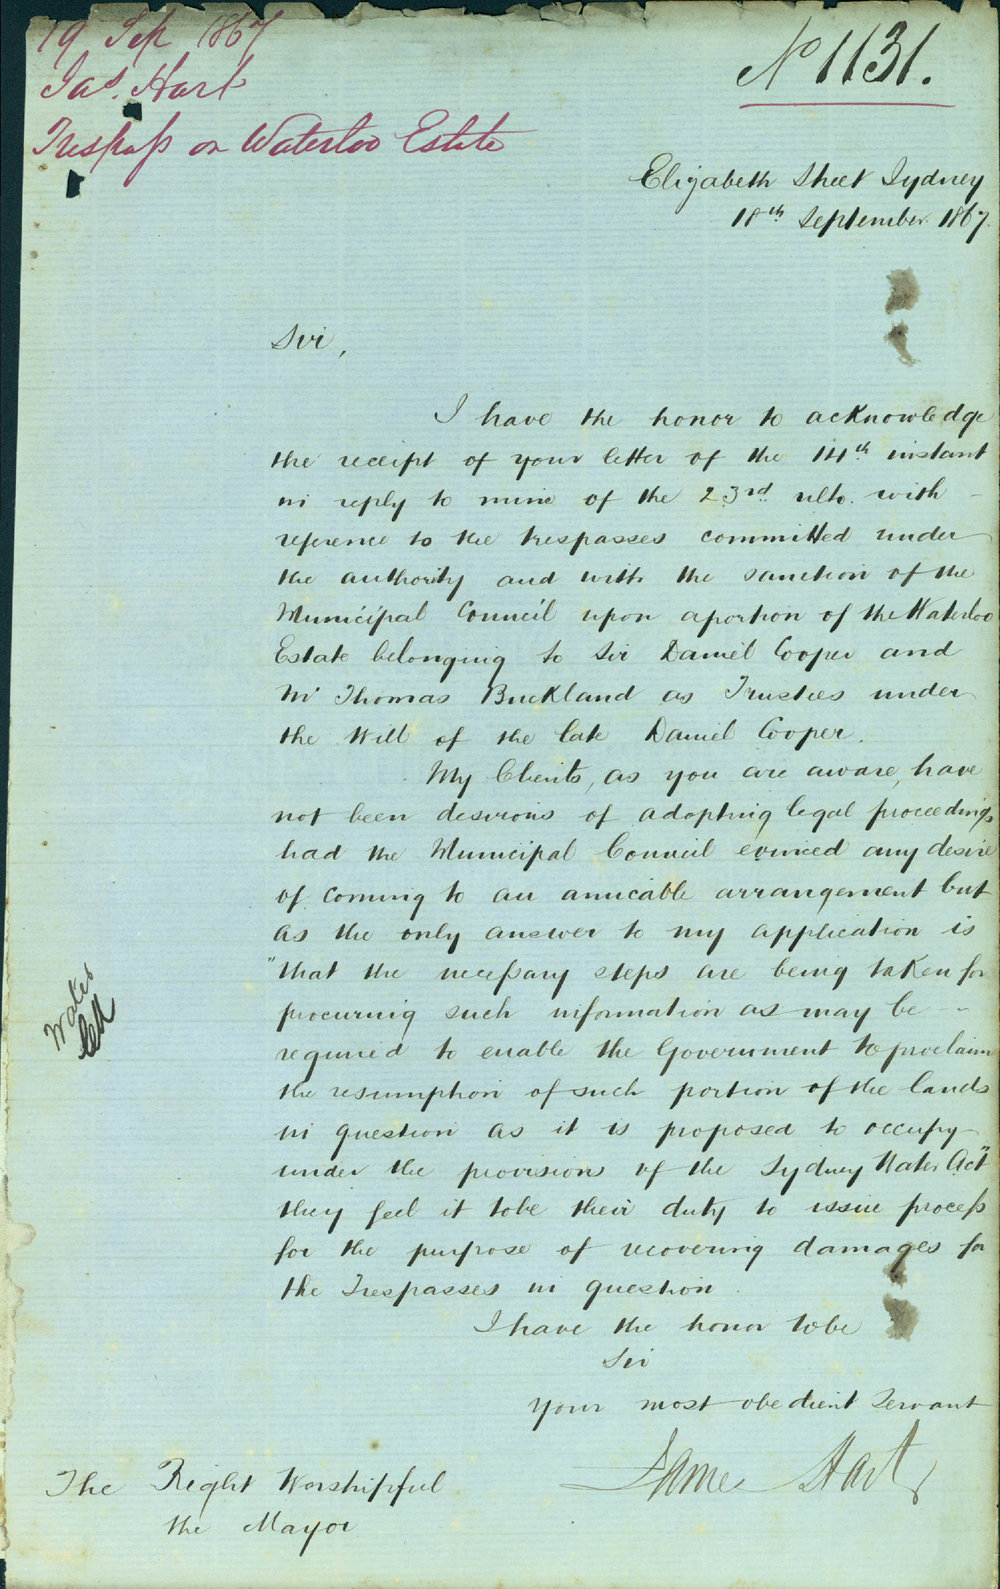 19 Sep 1867
Jas. Hart
Trespass on Waterloo Estate
No 1131.
Elizabeth Street Sydney
18th September 1867.
Sir,
I have the honor to acknowledge
the receipt of your letter of the 14th instant
in reply to mine of the 23rd ulto. with
reference to the trespasses committed under
the authority and with the sanction of the
Municipal Council upon a portion of the Waterloo
Estate belonging to Sir Daniel Cooper and
Mr Thomas Buckland as Trustees under
the Will of the late Daniel Cooper.
My Clients, as you are aware, have
not been desirous of adopting legal proceedings
had the Municipal Council evinced any desire
of coming to an amicable arrangement but
as the only answer to my application is
"that the necessary steps are being taken for
procuring such information as may be
required to enable the Government to proclaim
the resumption of such portion of the lands
in question as it is proposed to occupy
under the provisions of the Sydney Water Act"
they feel it to be their duty to issue process
for the purpose of recovering damages for
the Trespasses in question.
I have the honor to be
Sir
Your most obedient Servant
James Hart
The Right Worshipful
the Mayor
Water